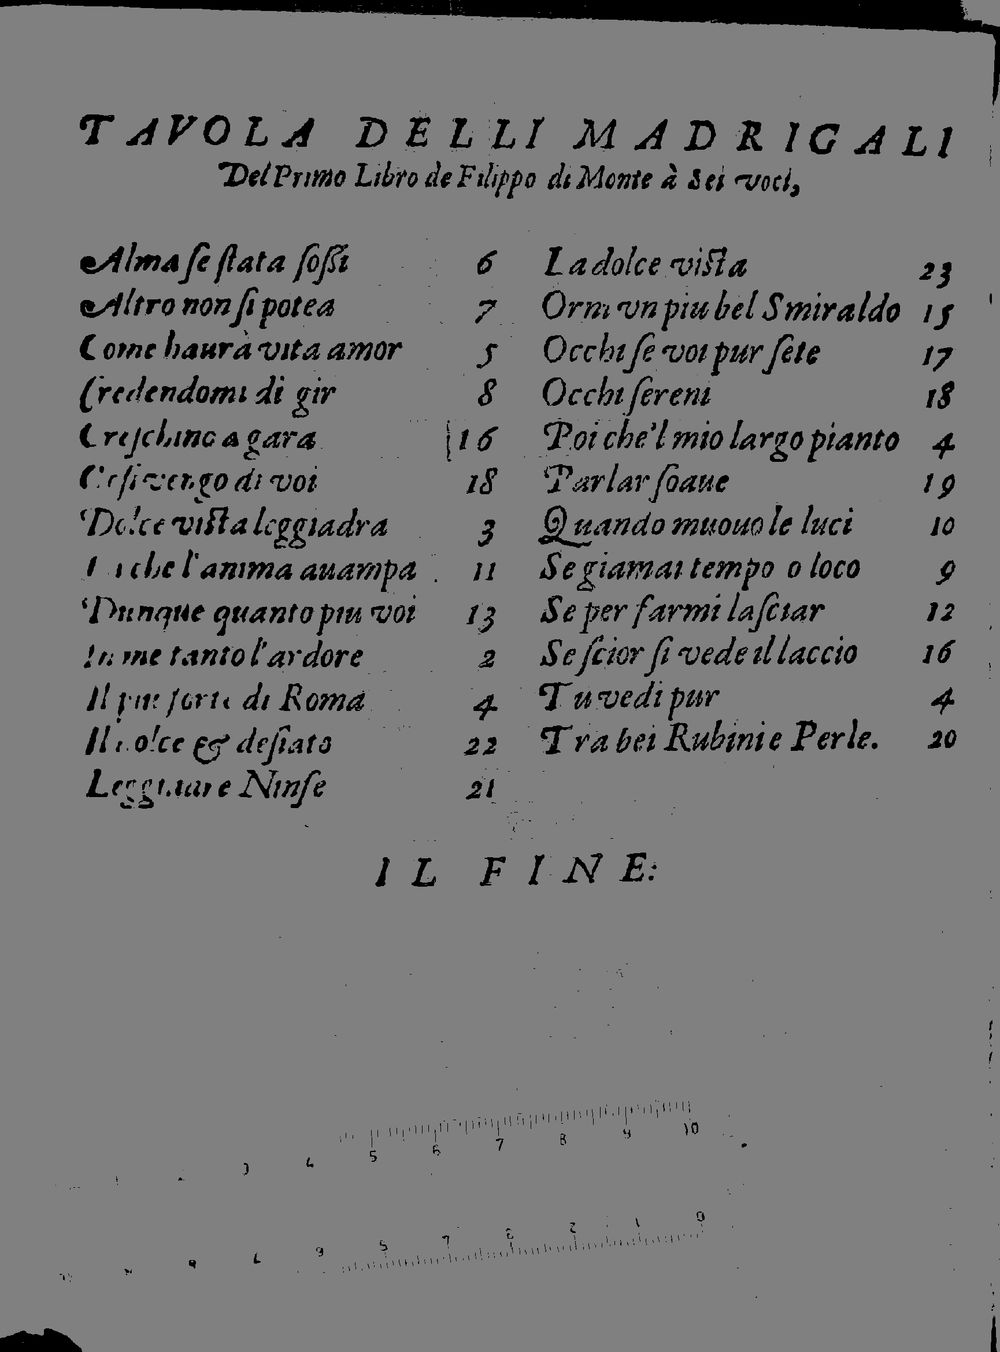 TAVOLA DELLI MADRIGALI
Del Primo Libro de Filippo di Monte à Sei voci,
Alma se stata fossi 6
Altro non si potea 7
Come haurà vita amor 5
Credendomi di gir 8
Creschino a gara 16
Cosi vengo di voi 18
Dolce vista leggiadra 3
che l'anima auampa 11
Dunque quanto piu voi 13
In me tanto l'ardore 2
Il piu forte di Roma 4
Il dolce & desiato 22
Leggiadre Ninfe 21
La dolce vista 23
Orni vn piu bel Smiraldo 15
Occhi se voi pur sete 17
Occhi sereni 18
Poi che'l mio largo pianto 4
Parlar soaue 19
Quando muouo le luci 10
Se giamai tempo o loco 9
Se per farmi lasciar 12
Se scior si vede il laccio 16
Tu vedi pur 4
Tra bei Rubini e Perle. 20
IL FINE:
3 4 5 6 7 8 9 10